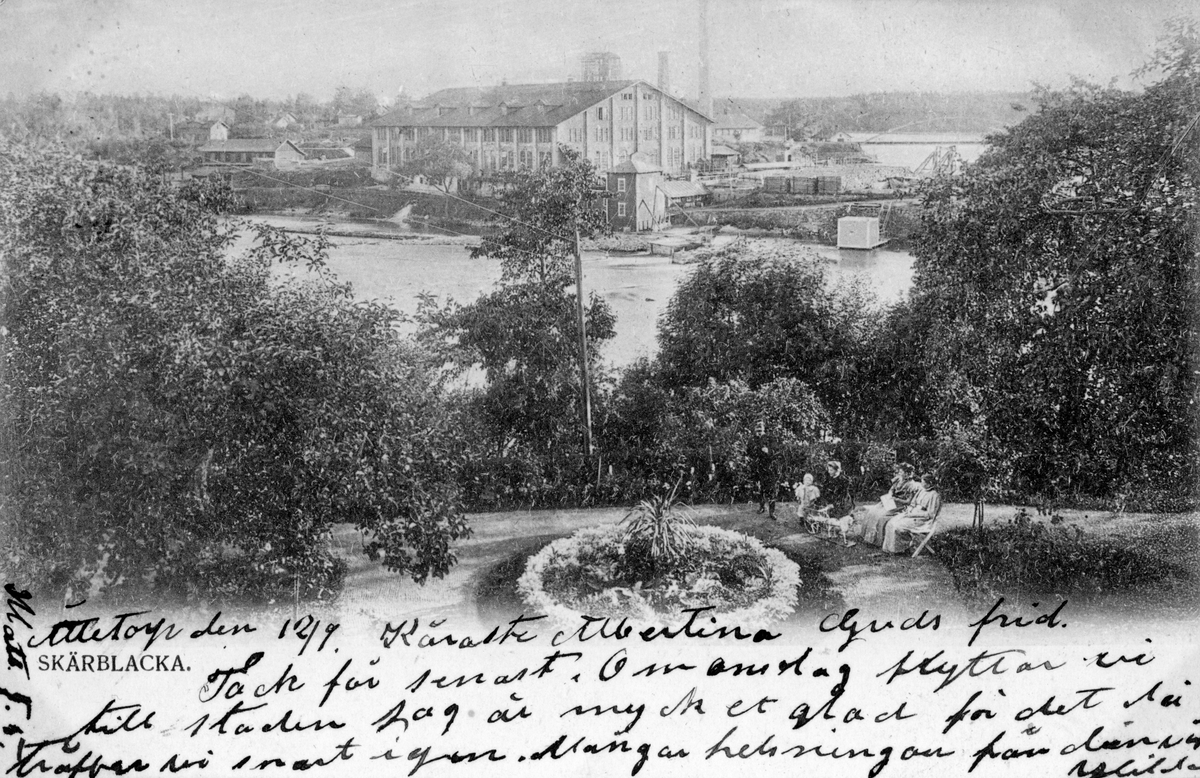 Ättetorp den 12/9 Käraste Albertina Guds frid.
SKÄRBLACKA.
Tack för senast. Om onsdag flyttar vi
till staden Jag är mycket glad för det då
träffas vi snart igen. Mångar helsningar från din vän
Hilda
Matt 5.8